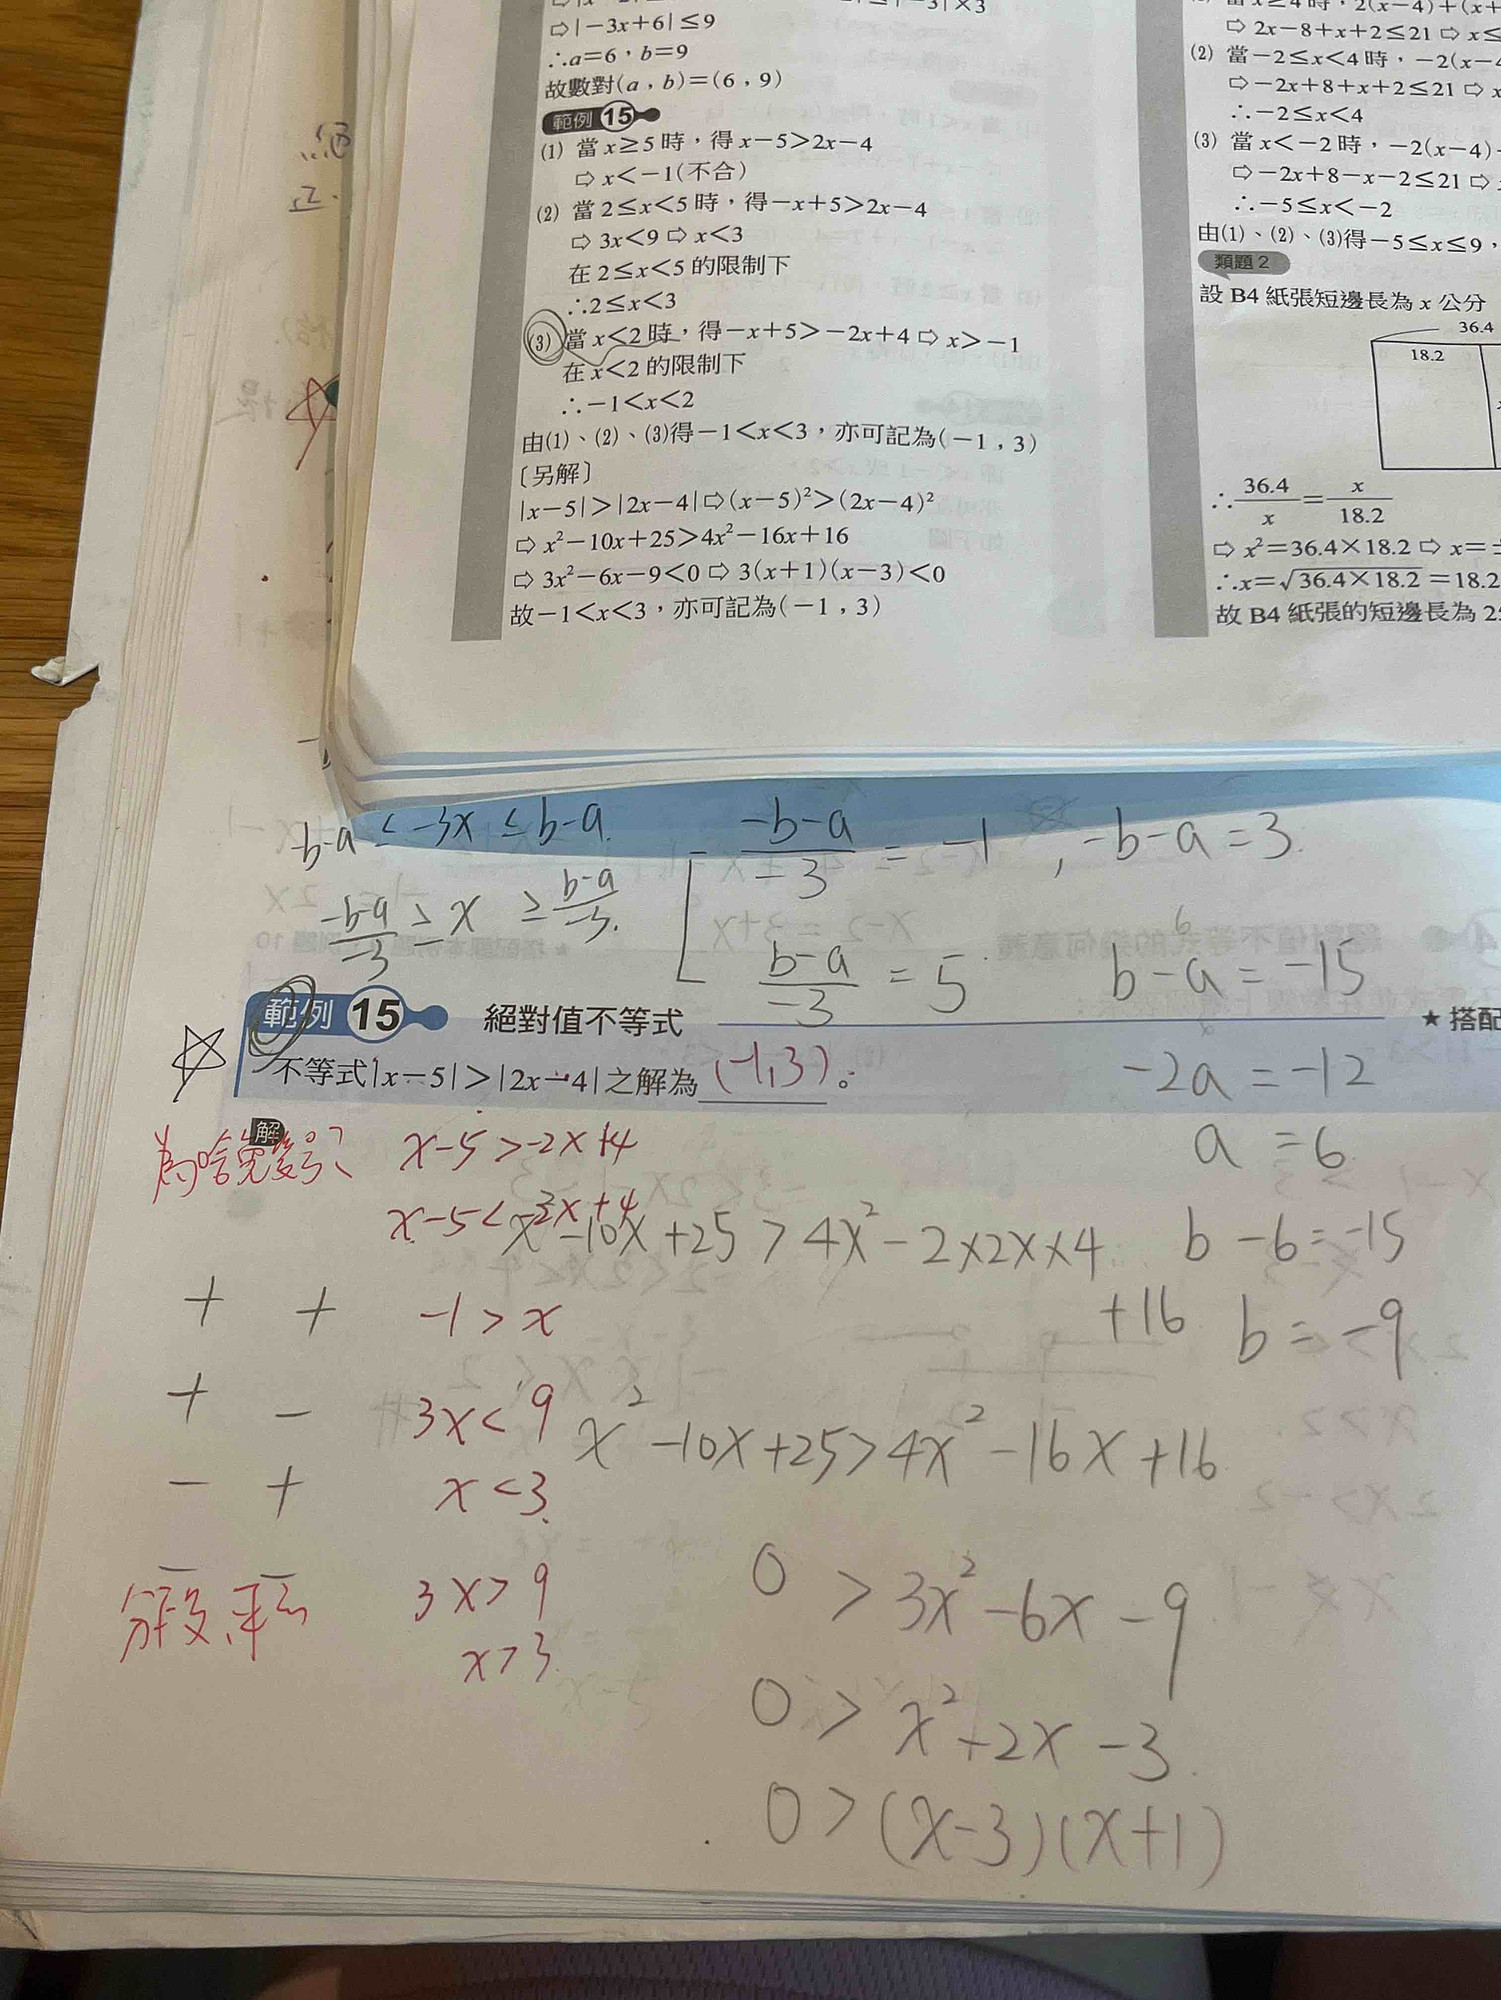 ⇨|−3x+6|≤9
∴a=6，b=9
故數對(a，b)=(6，9)
範例 15
(1) 當x≥5時，得x−5>2x−4
⇨x<−1(不合)
(2) 當2≤x<5時，得−x+5>2x−4
⇨3x<9⇨x<3
在2≤x<5的限制下
∴2≤x<3
(3) 當x<2時，得−x+5>−2x+4⇨x>−1
在x<2的限制下
∴−1<x<2
由(1)、(2)、(3)得−1<x<3，亦可記為(−1，3)
〔另解〕
|x−5|>|2x−4|⇨(x−5)²>(2x−4)²
⇨x²−10x+25>4x²−16x+16
⇨3x²−6x−9<0⇨3(x+1)(x−3)<0
故−1<x<3，亦可記為(−1，3)
當x≥4時，2(x−4)+(x+
⇨2x−8+x+2≤21⇨x≤
(2) 當−2≤x<4時，−2(x−4
⇨−2x+8+x+2≤21⇨x
∴−2≤x<4
(3) 當x<−2時，−2(x−4)−
⇨−2x+8−x−2≤21⇨
∴−5≤x<−2
由(1)、(2)、(3)得−5≤x≤9，
類題2
設B4紙張短邊長為x公分
36.4
18.2
∴36.4/x=x/18.2
⇨x²=36.4×18.2⇨x=±
∴x=√36.4×18.2=18.2
故B4紙張的短邊長為25
-b-a≤-3x≤b-a
(-b-a)/-3≥x≥(b-a)/-3
(-b-a)/-3=-1，-b-a=3
(b-a)/-3=5
b-a=-15
6
-2a=-12
a=6
b-6=-15
b=-9
範例 15 絕對值不等式
★搭配
不等式|x−5|>|2x−4|之解為(-1,3)。
解
為啥免變號？
x-5>-2x+4
x-5<-2x+4
x²-10x+25>4x²-2×2x×4
+16
+ + -1>x
+ - 3x<9
x²-10x+25>4x²-16x+16
- + x<3
- - 3x>9
x>3
0>3x²-6x-9
0>x²-2x-3
0>(x-3)(x+1)